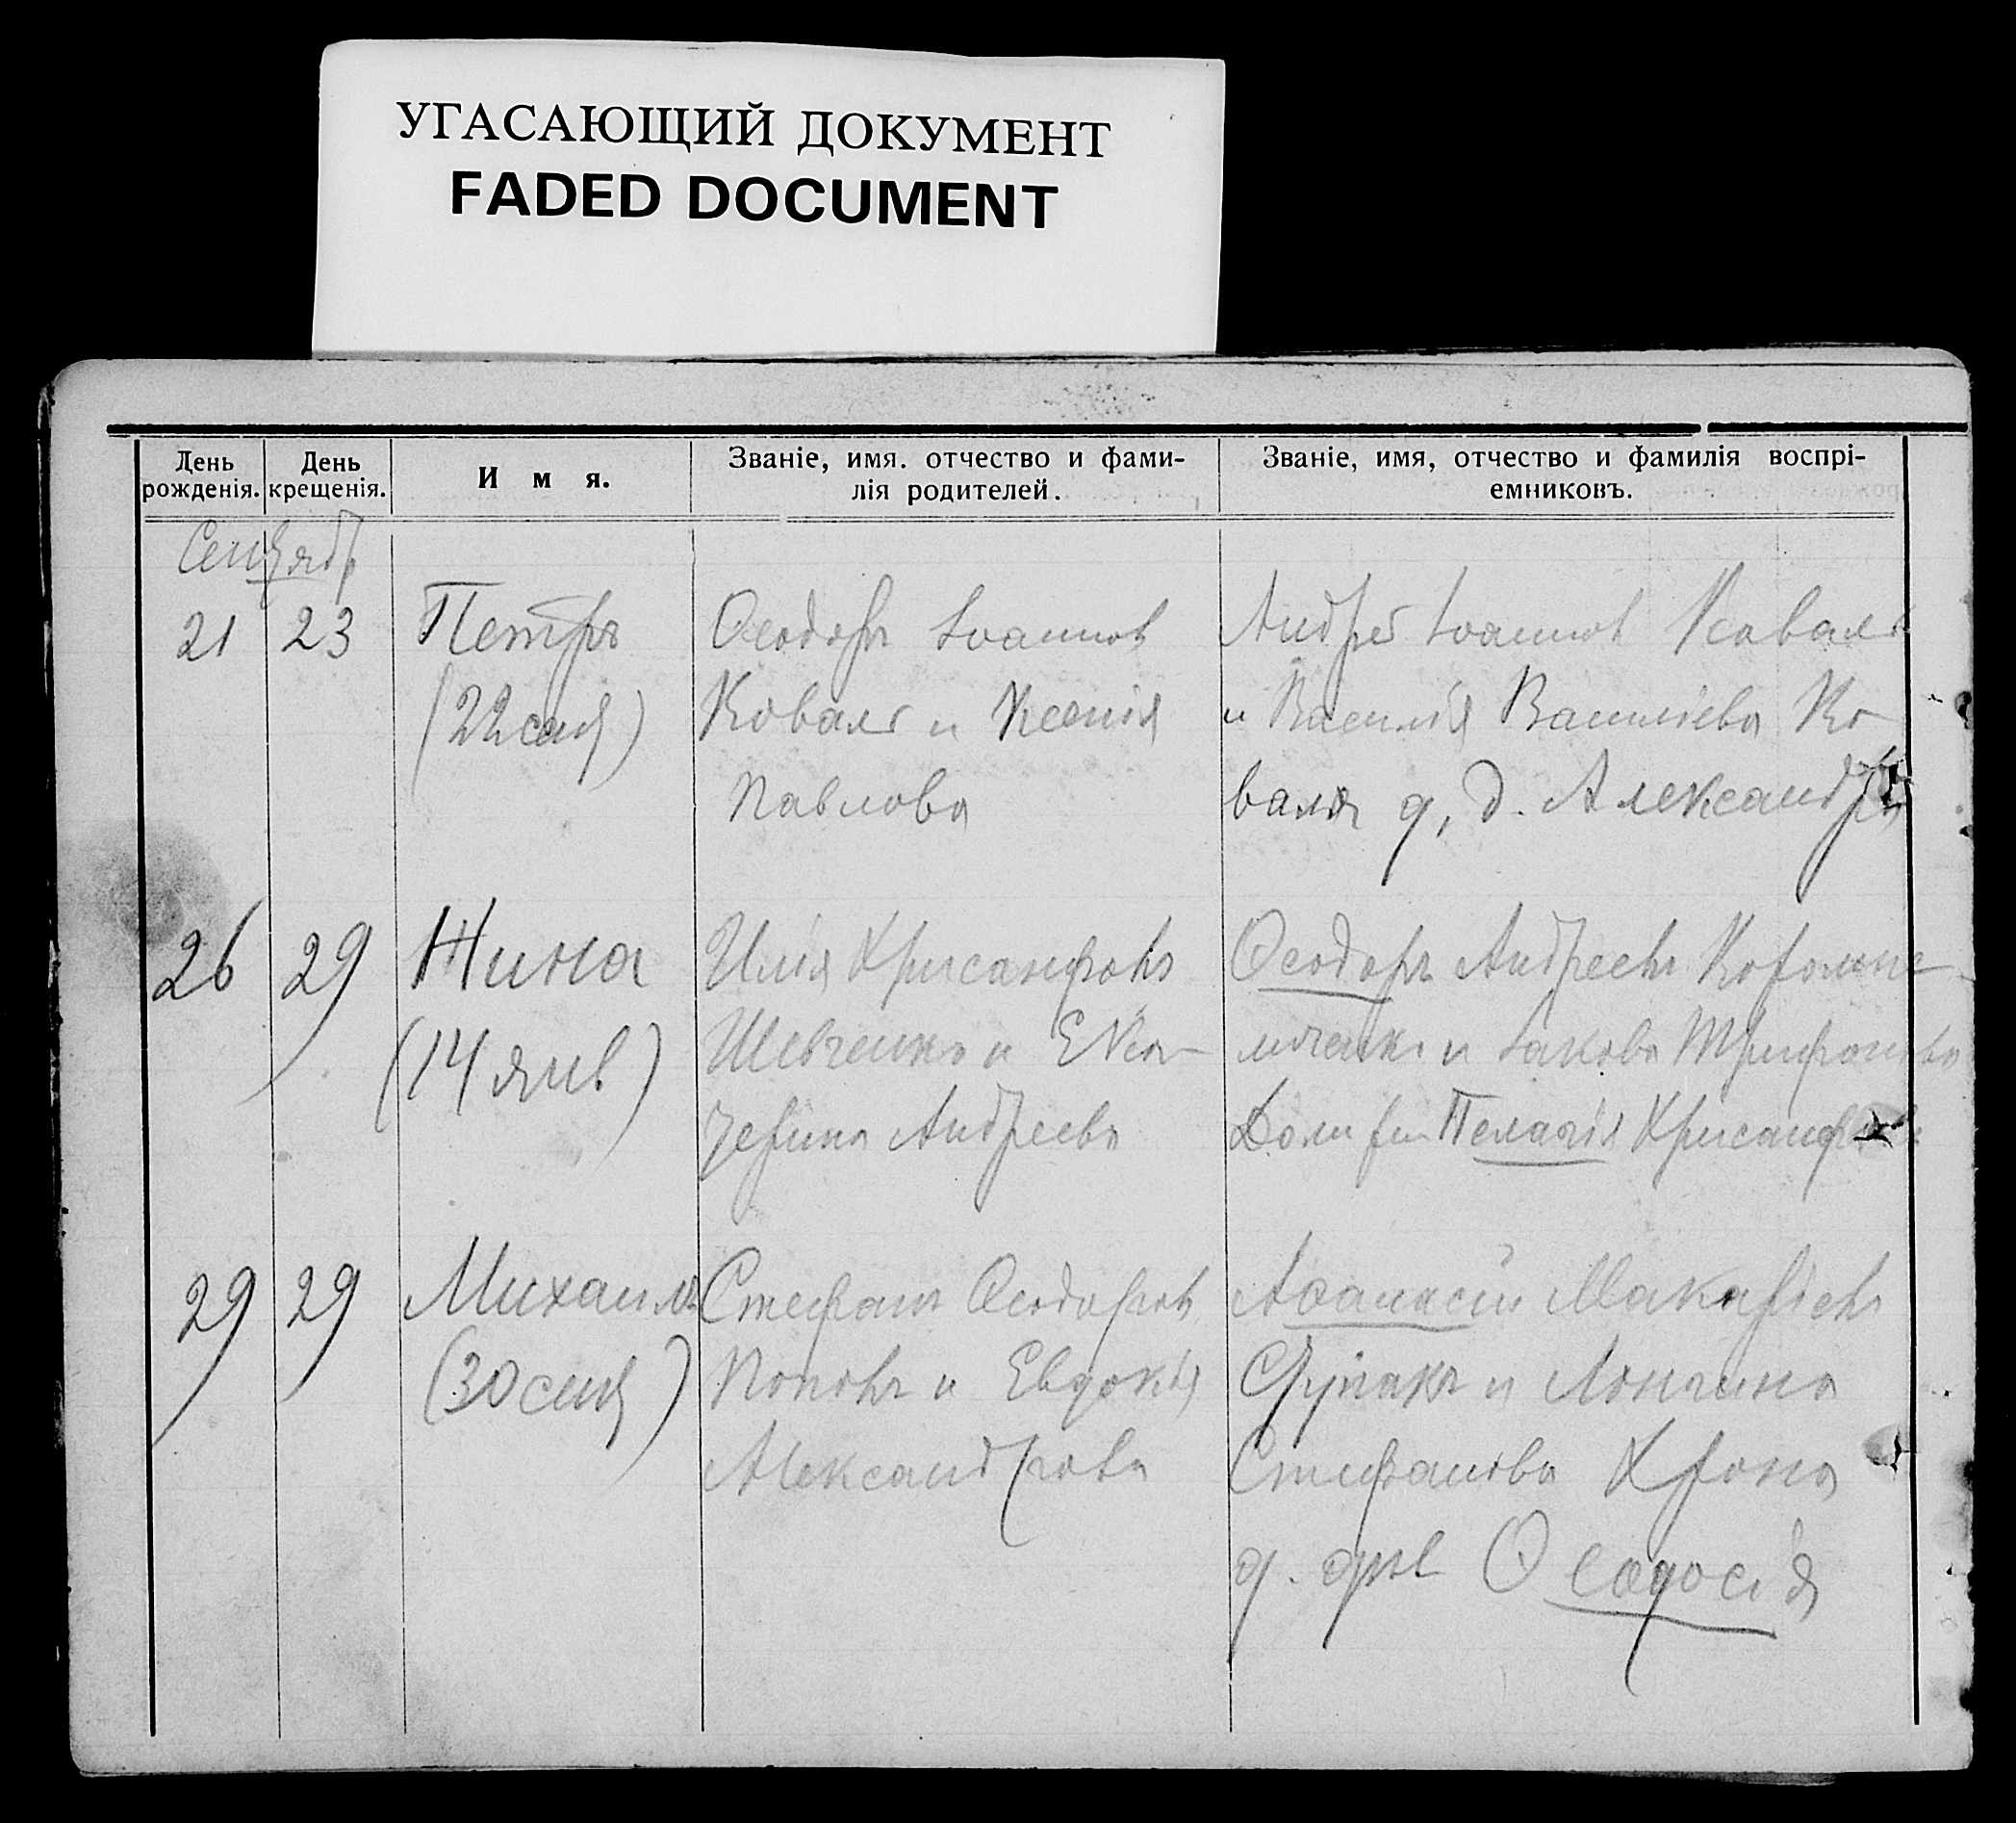 УГАСАЮЩИЙ ДОКУМЕНТ
FADED DOCUMENT
День рожденія.
День крещенія.
Имя.
Званіе, имя. отчество и фами-
лія родителей.
Званіе, имя, отчество и фамилія воспрі-
емниковъ.
Сентябр
21
23
Петръ
(22 сент)
Ѳеодоръ Іоаннов
Коваль и Ксенія
Павлова
Андрей Іоаннов Коваль
и Василія Васильева Ко
валя д, д. Александра
26
29
Нина
(14 янв)
Илія Хрисанфовъ
Шевченко и Ека-
терина Андреева
Ѳеодоръ Андреевъ
и Іакова Трифонова
Пелагія
29
29
Михаилъ
(30 сент)
Стефанъ Ѳеодоровъ
Поповъ и Евдокія
Александрова
Аѳанасій Макаріевъ
и Лонгина
Стефанова Хрона
д. Ѳеодосія